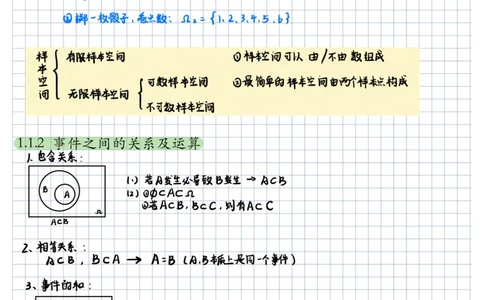 ②掷一枚骰子，看点数： Ω₂ = {1,2,3,4,5,6}
样本空间
有限样本空间
无限样本空间
可数样本空间
不可数样本空间
①样本空间可以由/不由数组成
②最简单的样本空间由两个样本点构成
1.1.2 事件之间的关系及运算
1. 包含关系：
B A Ω
A⊂B
(1) 若A发生必导致B发生 → A⊂B
(2) ①∅⊂A⊂Ω
②若A⊂B，B⊂C，则有A⊂C
2、相等关系：
A⊂B，B⊂A → A=B (A,B本质上是同一个事件)
3、事件的和：